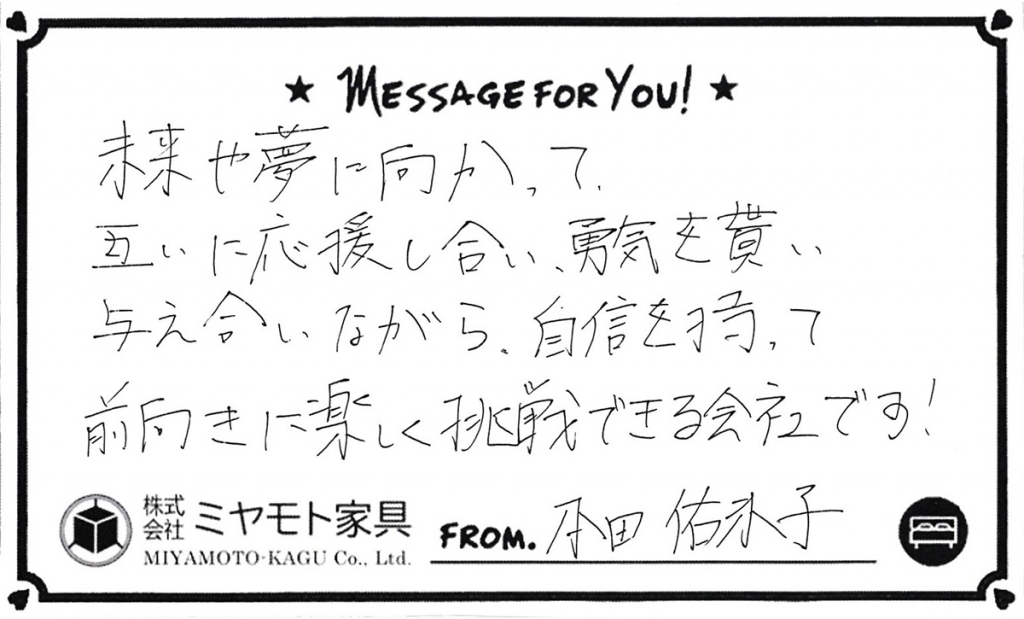 ★ MESSAGE FOR YOU! ★
未来や夢に向かって、
互いに応援し合い、勇気を貰い
与え合いながら、自信を持って
前向きに楽しく挑戦できる会社です!
株式会社 ミヤモト家具
MIYAMOTO-KAGU Co., Ltd.
FROM. 本田 佑衣子